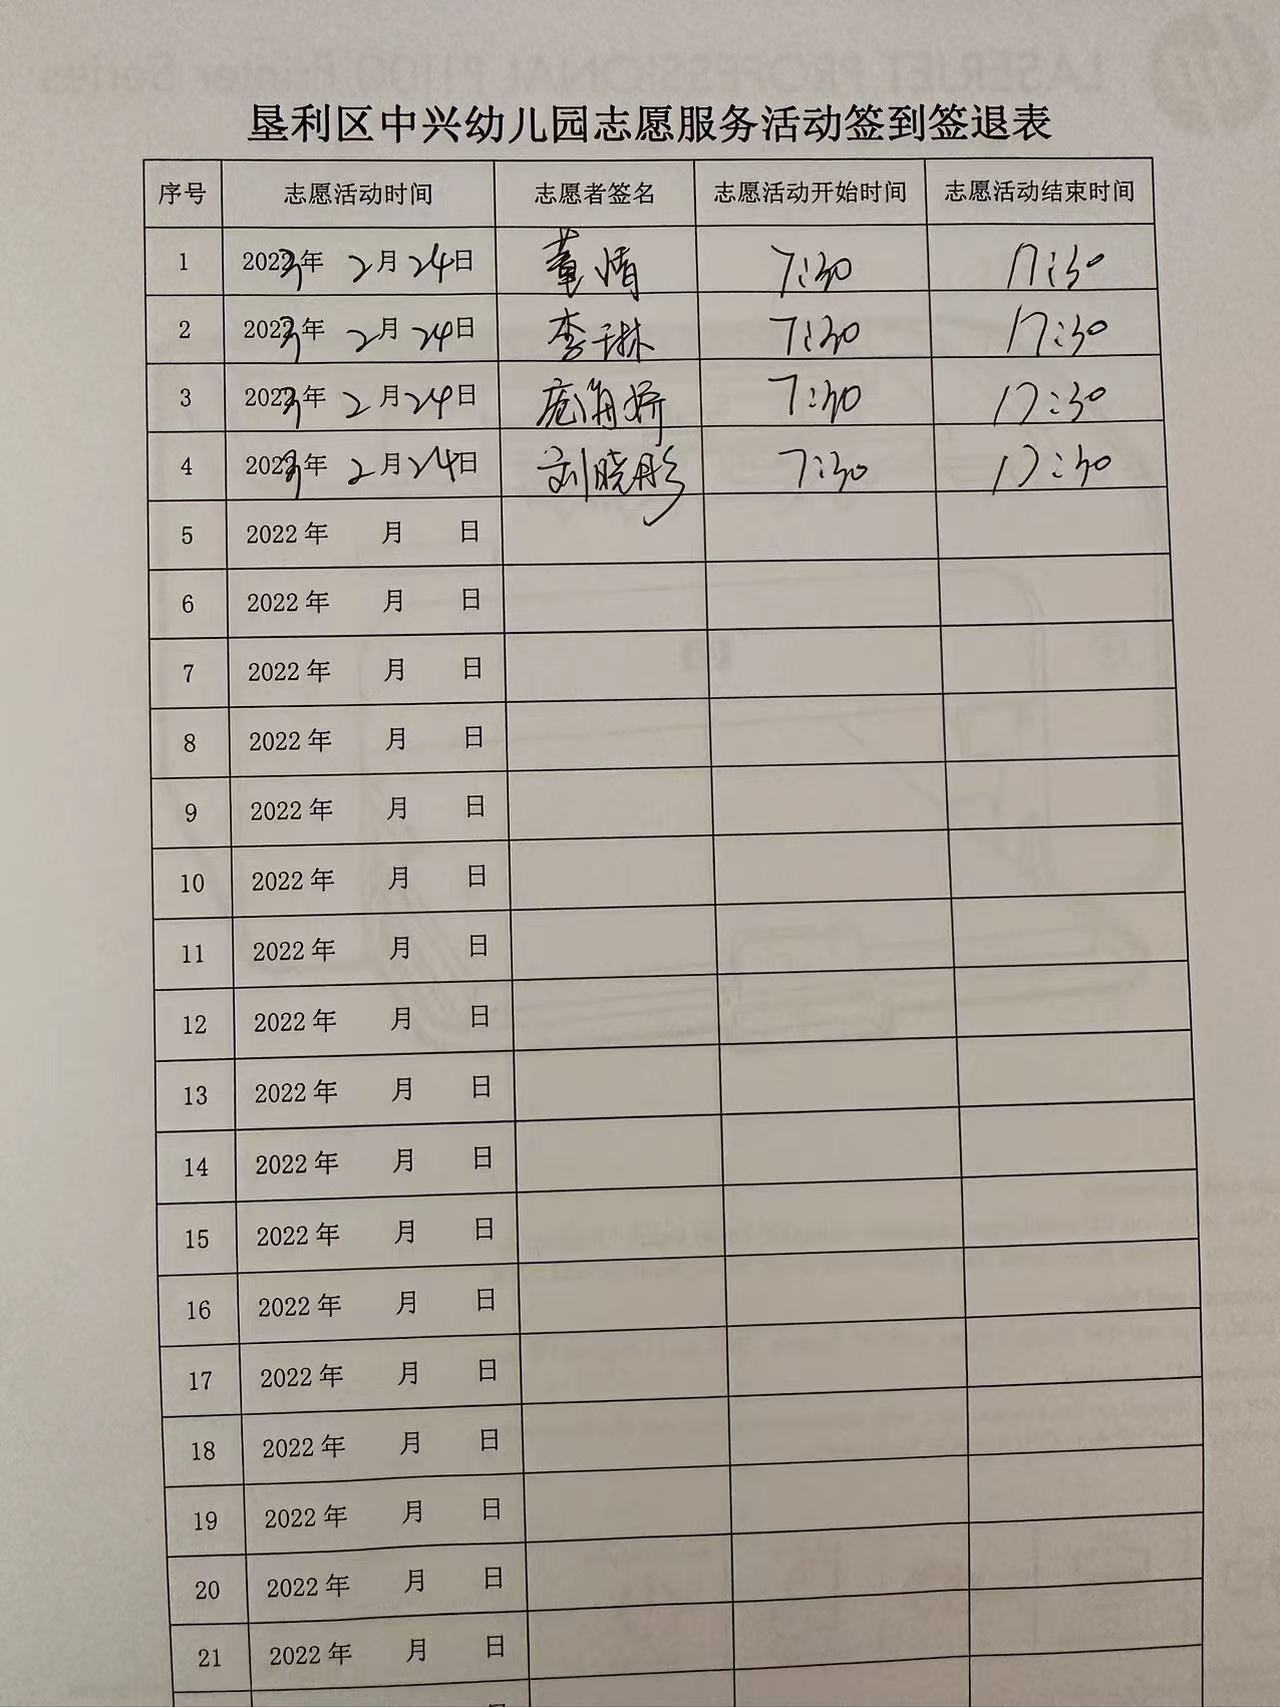 LASERJET PROFESSIONAL P1100 Printer Series
垦利区中兴幼儿园志愿服务活动签到签退表
序号 志愿活动时间 志愿者签名 志愿活动开始时间 志愿活动结束时间
1 2023年 2月24日 董倩 7:30 17:30
2 2023年 2月24日 李琳 7:30 17:30
3 2023年 2月24日 7:30 17:30
4 2023年 2月24日 刘晓彤 7:30 17:30
5 2022年 月 日
6 2022年 月 日
7 2022年 月 日
8 2022年 月 日
9 2022年 月 日
10 2022年 月 日
11 2022年 月 日
12 2022年 月 日
13 2022年 月 日
14 2022年 月 日
15 2022年 月 日
16 2022年 月 日
17 2022年 月 日
18 2022年 月 日
19 2022年 月 日
20 2022年 月 日
21 2022年 月 日